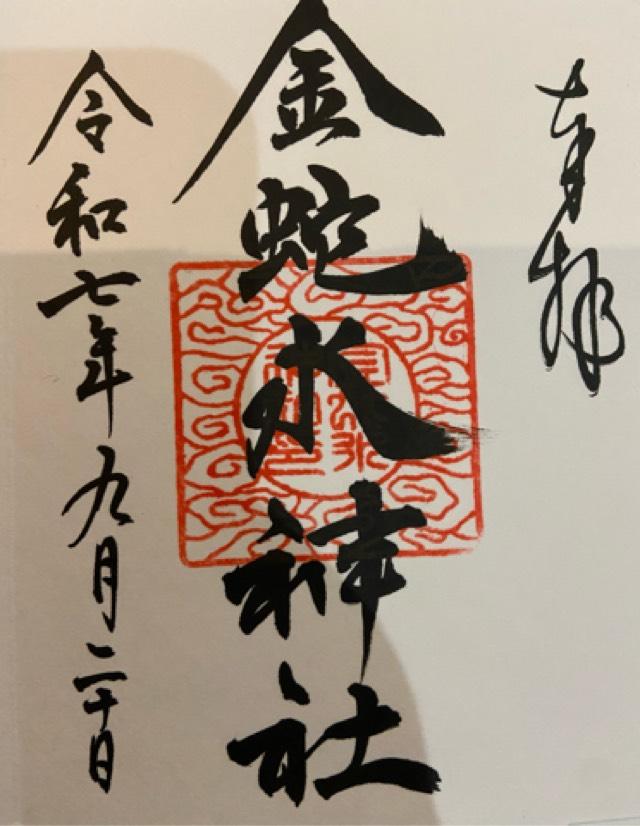 奉拝
金蛇水神社
令和七年九月二十日